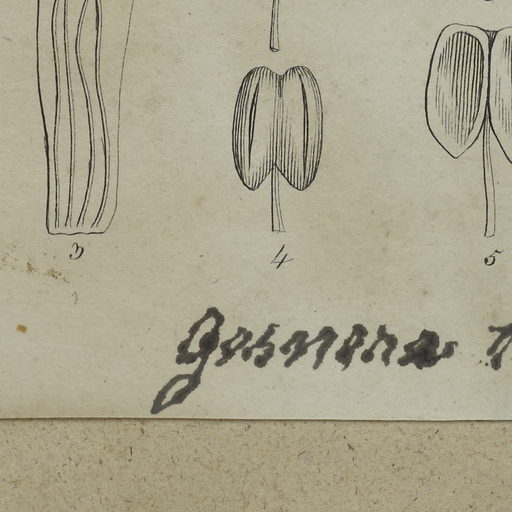 3 4 5
Gesnera